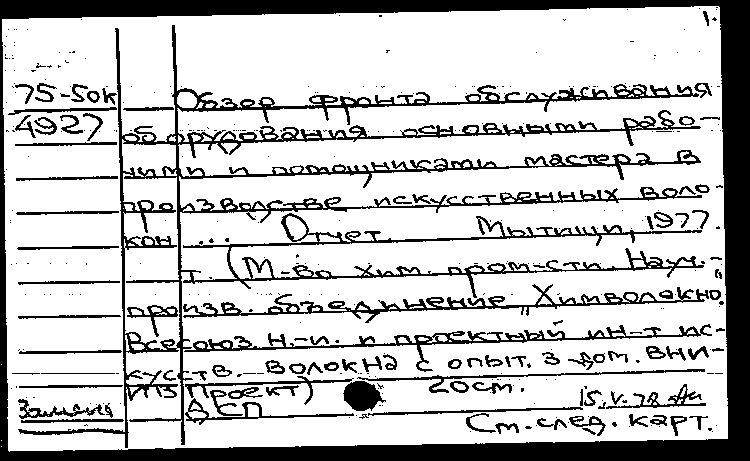 1.
75-50к Обзор фронта обслуживания
4927 оборудования основными рабо-
чими и помощниками мастера в
производстве искусственных воло-
кон ... Отчет. Мытищи, 1977.
т. (М-во хим. пром-сти. Науч.-
произв. объединение „Химволокно"
Всесоюз. н.-и. и проектный ин-т ис-
кусств. волокна с опыт. з-дом. ВНИ-
ИВ Проект) 20см.
Замена ДСП 15.V.78
См. след. карт.